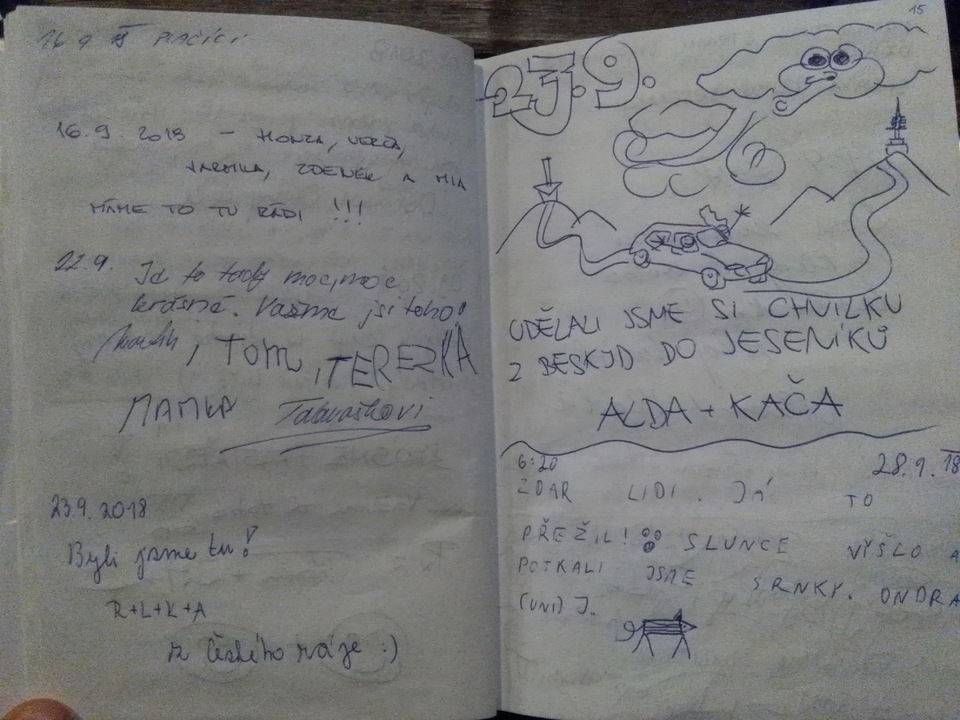 16.9
PLAČÍCÍ
16.9. 2018 – HONZA, VERČA,
JARMILA, ZDENEK A MIA
MÁME TO TU RÁDI !!!
22.9. Je to tady moc, moc
krásné.
, TOM, TEREZKA
MAMKA
23.9.2018
Byli jsme tu!
R+L+K+A
z Českého ráje :)
15
23.9.
UDĚLALI JSME SI CHVILKU
Z BESKYD DO JESENÍKŮ
ALDA + KAČA
6:20 28.9.18
ZDAR LIDI. TO
PŘEŽIL! SLUNCE VYŠLO A
POTKALI JSME SRNKY. ONDRA
(UNI) J.